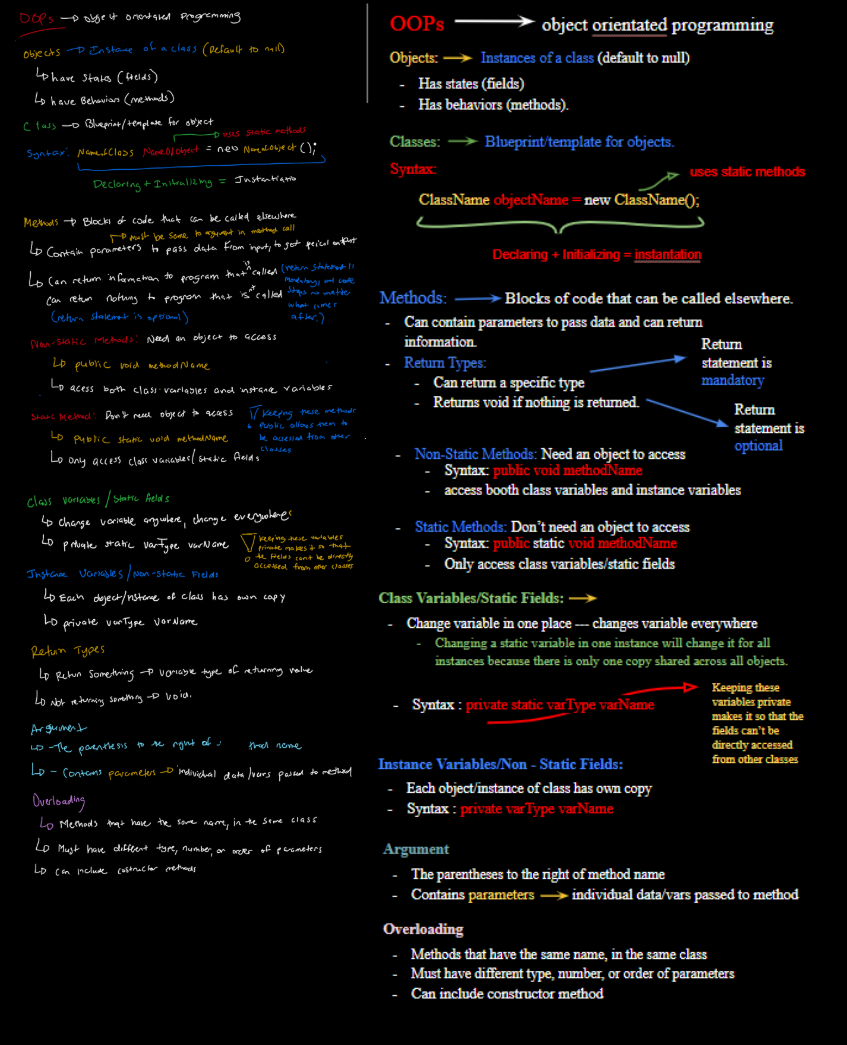 OOPs → object orientated programming
Objects → Instance of a class (Default to null)
↳ have states (fields)
↳ have Behaviors (methods)
Class → Blueprint/template for object
→ uses static methods
Syntax: NameofClass NameOfObject = new NameofObject ();
Declaring + Initializing = Instantiatio
Methods → Blocks of code that can be called elsewhere
→ must be same to argument in method call
↳ Contain parameters to pass data from input, to get output
↳ Can return information to program that is called (return statement is
mandatory, and code
stops no matter
what comes
after.)
can return nothing to program that is called
(return statement is optional)
Non-static Methods: Need an object to access
↳ public void methodName
↳ acess both class variables and instance variables
Static Method: Don't need object to access
↳ public static void methodName
↳ only access class variables/static fields
Keeping these methods
public allows them to
be accessed from other
classes
Class Variables/Static Fields
↳ change variable anywhere, change everywhere
↳ private static varType varName
Keeping these variables
private makes it so that
the fields can't be directly
accessed from other classes
Instance Variables/Non-Static Fields
↳ Each object/instance of class has own copy
↳ private varType varName
Return Types
↳ Return Something → variable type of returning value
↳ Not returning something → void.
Argument
↳ - The parenthesis to the right of : name
↳ - Contains parameters → individual data/vars passed to method
Overloading
↳ Methods that have the same name, in the same class
↳ Must have different type, number, or order of parameters
↳ can include costructor methods
OOPs → object orientated programming
Objects: → Instances of a class (default to null)
- Has states (fields)
- Has behaviors (methods).
Classes: → Blueprint/template for objects.
Syntax:
uses static methods
ClassName objectName = new ClassName();
Declaring + Initializing = instantation
Methods: → Blocks of code that can be called elsewhere.
- Can contain parameters to pass data and can return
information.
- Return Types:
- Can return a specific type
- Returns void if nothing is returned.
Return
statement is
mandatory
Return
statement is
optional
- Non-Static Methods: Need an object to access
- Syntax: public void methodName
- access booth class variables and instance variables
- Static Methods: Don't need an object to access
- Syntax: public static void methodName
- Only access class variables/static fields
Class Variables/Static Fields: →
- Change variable in one place --- changes variable everywhere
- Changing a static variable in one instance will change it for all
instances because there is only one copy shared across all objects.
- Syntax : private static varType varName
Keeping these
variables private
makes it so that the
fields can't be
directly accessed
from other classes
Instance Variables/Non - Static Fields:
- Each object/instance of class has own copy
- Syntax : private varType varName
Argument
- The parentheses to the right of method name
- Contains parameters → individual data/vars passed to method
Overloading
- Methods that have the same name, in the same class
- Must have different type, number, or order of parameters
- Can include constructor method